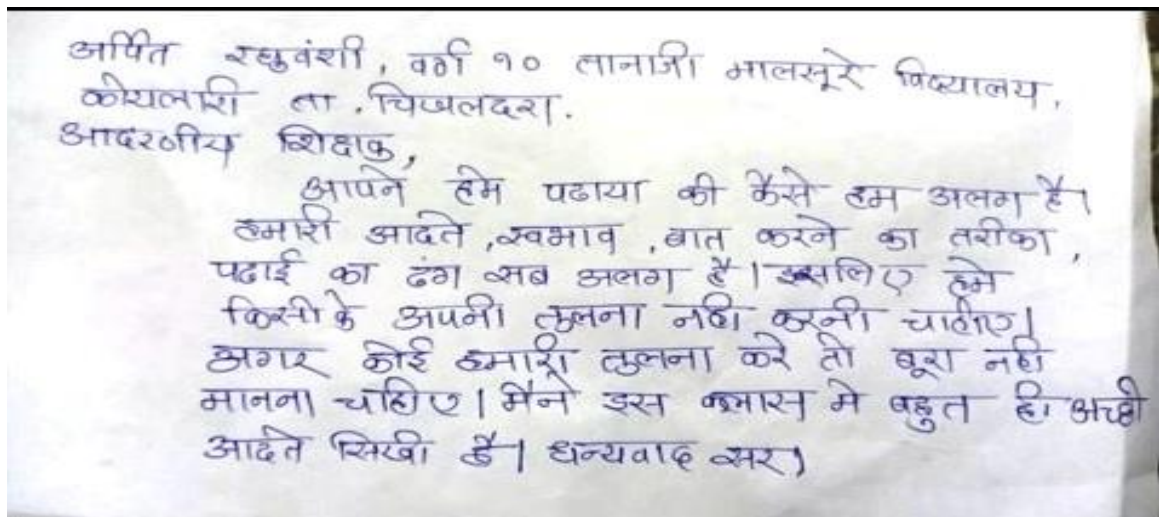 अर्पित रघुवंशी, वर्ग १० तानाजी मालसूरे विद्यालय,
कोयलारी ता. चिखलदरा.
आदरणीय शिक्षक,
आपने हमे पढाया की कैसे हम अलग है।
हमारी आदते, स्वभाव, बात करने का तरीका,
पढाई का ढंग सब अलग है। इसलिए हमे
किसीके अपनी तुलना नही करनी चाहीए।
अगर कोई हमारी तुलना करे तो बूरा नही
मानना चाहीए। मैने इस क्लास मे बहुत ही अच्छी
आदते सिखी है। धन्यवाद सर)